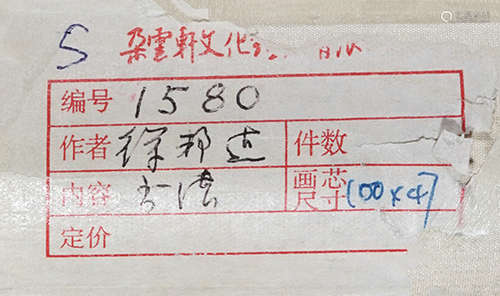 S 朵雲軒文化
编号 1580
作者 徐邦达 件数
内容 书法 画芯尺寸 100×47
定价